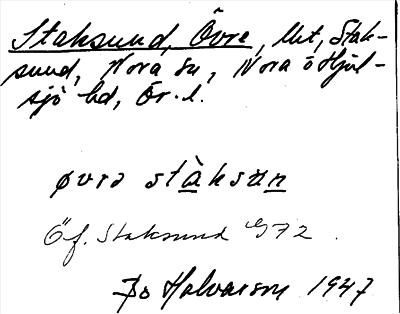 Staksund, Övre, lht, Stak-
sund, Nora sn, Nora o Hjul-
sjö bd, Ör. l.
øvrə stàksun
Öf. Staksund G72.
Bo Halvarson 1947